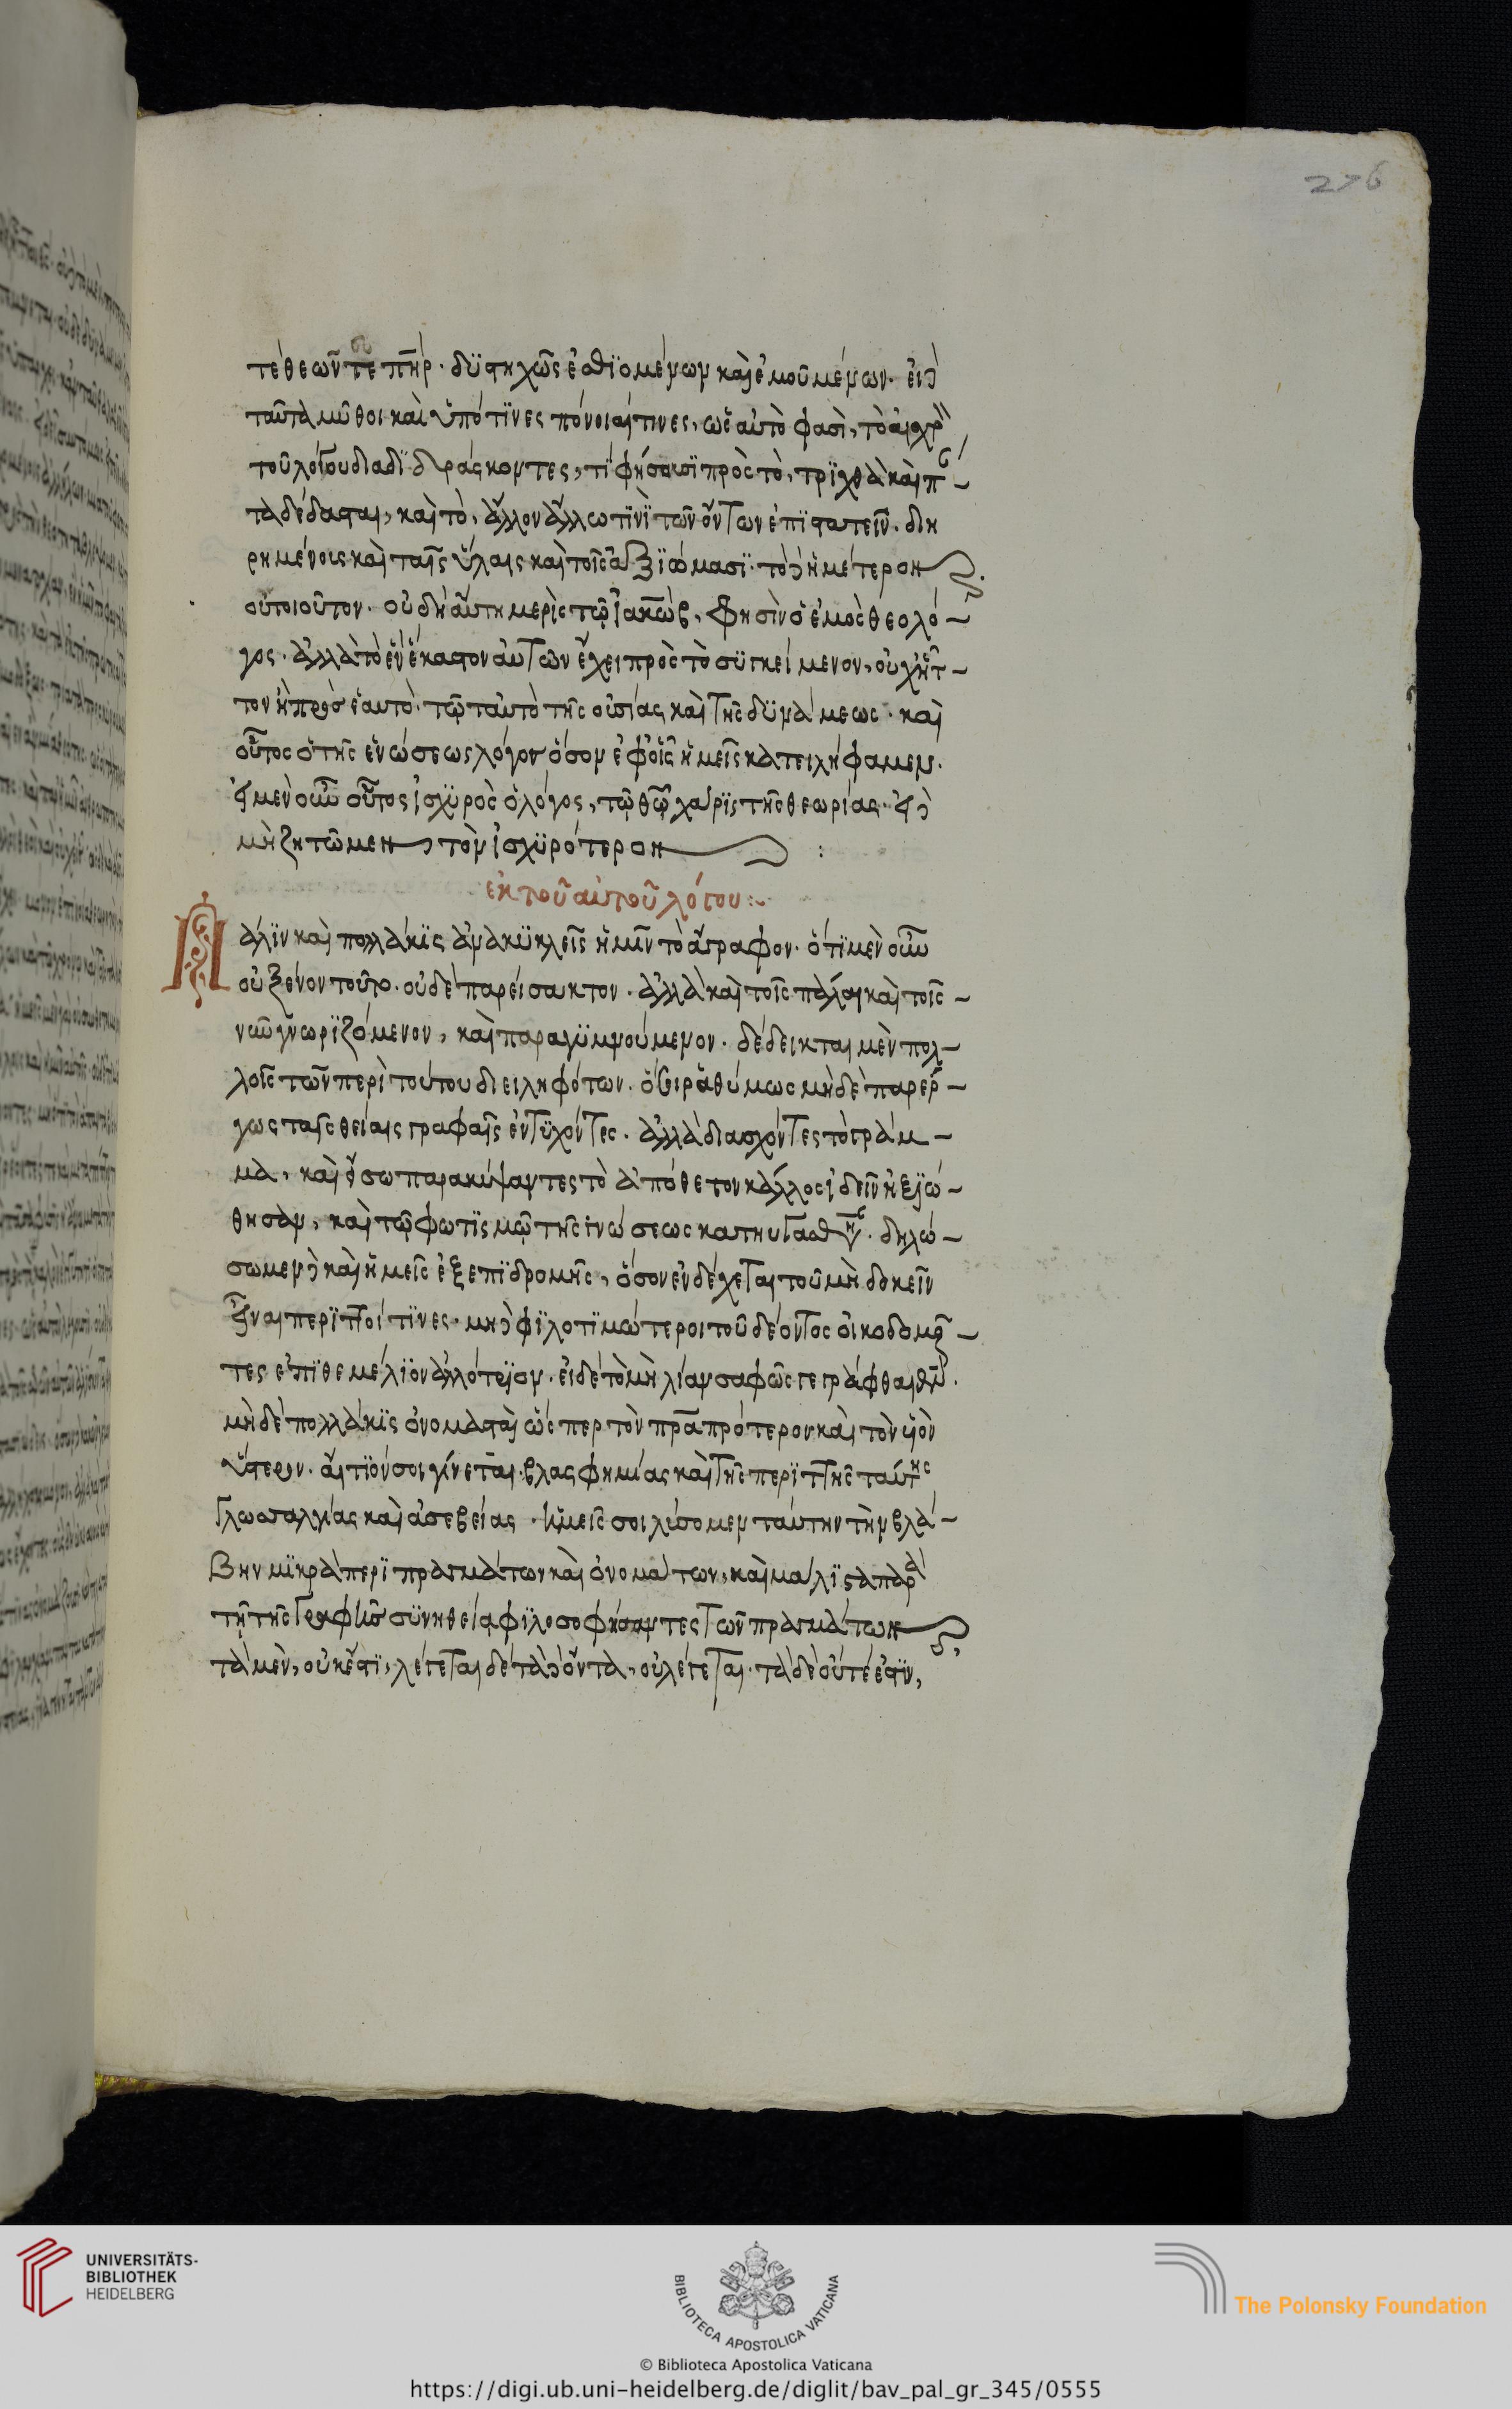 276
τέ θεῶν τε πῆρ· δυστηχῶς ἐσθιομένων καὶ ἐμουμένων· εἰ δὲ
ταῦτα μῦθοι καὶ ὑπό τινες πόνοιαί τινες, ὡς αὐτό φασι, τὸ αἰσχρὸν
τοῦ λόγου διαδιδράσκοντες, τί φήσουσι πρὸς τὸ, τριχθὰ καὶ π
τα δέδασται, καὶ τὸ, ἄλλον ἄλλω τινὶ τῶν ὄντων ἐπιστατεῖν. διη
ρημένοις καὶ ταῖς ὕλαις καὶ τοῖς ἀξιώμασι· τὸ δὲ ἡμέτερον
οὐ τοιοῦτον. οὐδὴ αὕτη μερὶς τῷ ἰακώβ, φησὶν ὁ ἐμὸς θεολό
γος· ἀλλὰ τὸ ἓν ἕκαστον αὐτῶν ἔχει πρὸς τὸ συγκείμενον, οὐχ ἧτ
τον ἢ πρὸς ἑαυτό· τῷ ταὐτὸ τῆς οὐσίας καὶ τῆς δυνάμεως· καὶ
οὗτος ὁ τῆς ἑνώσεως λόγον ὅσον ἐφ' οἷς ἡμεῖς κατειλήφαμεν.
εἰ μὲν οὖν οὗτος ἰσχυρὸς ὁ λόγος, τῷ θῷ χάρις τῆς θεωρίας· εἰ δὲ
μὴ ζητῶμεν τὸν ἰσχυρότερον :
ἐκ τοῦ αὐτοῦ λόγου:
Πάλιν καὶ πολλάκις ἀνακυκλεῖς ἡμῖν τὸ ἄγραφον· ὅτι μὲν οὖν
οὐ ξένον τοῦτο· οὐδὲ παρείσακτον· ἀλλὰ καὶ τοῖς πάλαι καὶ τοῖς
νῦν γνωριζόμενον, καὶ παραγυμνούμενον· δέδεικται μὲν πολ
λοῖς τῶν περὶ τούτου διειληφότων. ὅσοι ῥαθύμως μηδὲ παρέρ
γως ταῖς θείαις γραφαῖς ἐντυχόντες· ἀλλὰ διασχόντες τὸ γράμ
μα, καὶ εἴσω παρακύψαντες τὸ ἀπόθετον κάλλος ἰδεῖν ἠξιώ
θησαν, καὶ τῷ φωτισμῷ τῆς γνώσεως κατηυγάσθησαν. δηλώ
σωμεν δὲ καὶ ἡμεῖς ἐξ ἐπιδρομῆς, ὅσον ἐνδέχεται τοῦ μὴ δοκεῖν
εἶναι περιττοί τινες· μηδὲ φιλοτιμώτεροι τοῦ δέοντος οἰκοδομοῦν
τες ἐπὶ θεμέλιον ἀλλότριον. εἰ δὲ τὸ μὴ λίαν σαφῶς γεγράφθαι θν.
μηδὲ πολλάκις ὀνομαστὶ ὥσπερ τὸν πρα πρότερον καὶ τὸν υἱὸν
ὕστερον. αἴτιόν σοι γίνεται βλασφημίας καὶ τῆς περιττῆς ταύτης
γλωσσαλγίας καὶ ἀσεβείας· ἡμεῖς σοι λύσομεν ταύτην τὴν βλά
βην μικρὰ περὶ πραγμάτων καὶ ὀνομάτων, καὶ μάλιστα παρὰ
τῇ τῆς γραφῆς συνηθεία φιλοσοφήσαντες τῶν πραγμάτων
τὰ μὲν, οὐκ ἔστι, λέγεται δὲ τὰ δὲ ὄντα, οὐ λέγεται· τὰ δὲ οὔτέ ἐστιν,
UNIVERSITÄTS-
BIBLIOTHEK
HEIDELBERG
BIBLIOTECA APOSTOLICA VATICANA
The Polonsky Foundation
© Biblioteca Apostolica Vaticana
https://digi.ub.uni-heidelberg.de/diglit/bav_pal_gr_345/0555